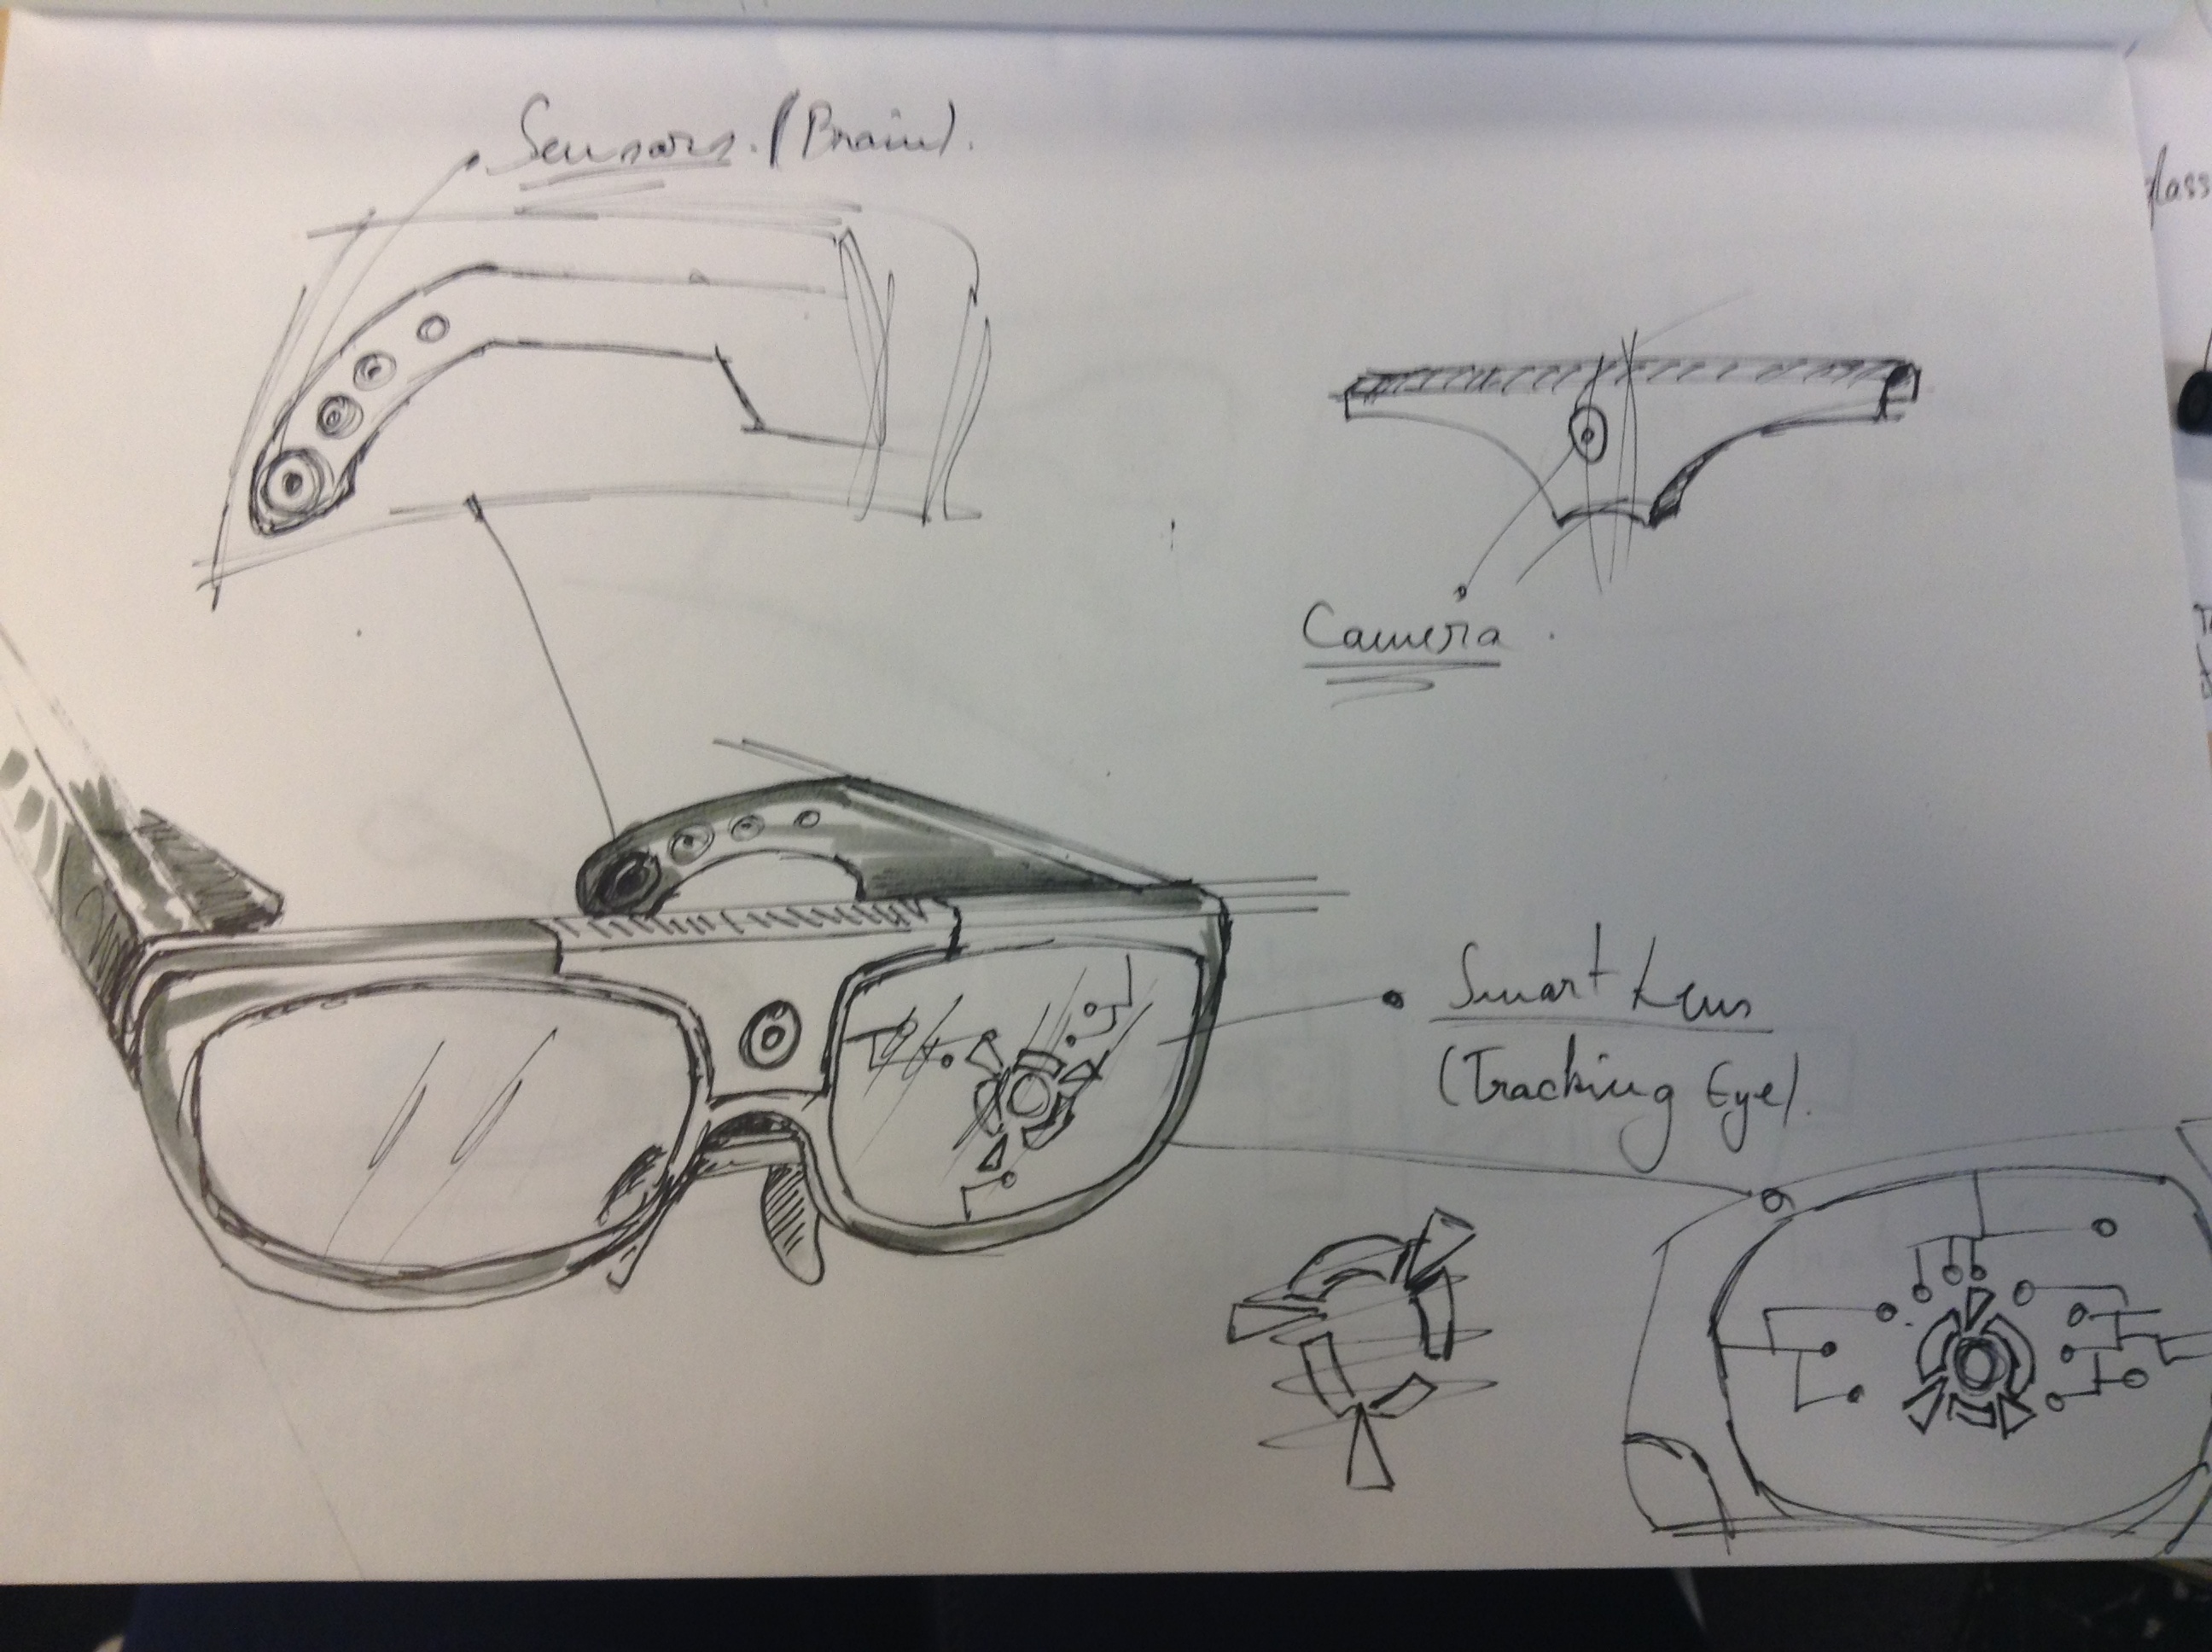 Sensors. (Brain).
Camera.
Smart Lens
(Tracking Eye).